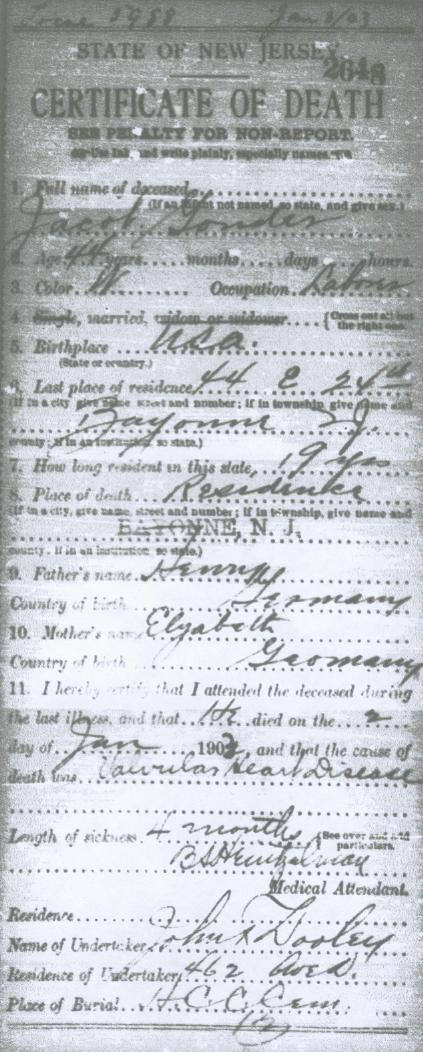 Jan 3/03
STATE OF NEW JERSEY
2648
CERTIFICATE OF DEATH
SEE PENALTY FOR NON-REPORT.
Use Ink and write plainly, especially names.
1. Full name of deceased
(If an infant not named, so state, and give sex.)
Jacob Sander
2. Age 44 years.....months.....days.....hours.
3. Color W. Occupation Labour
4. Single, married, widow or widower (Cross out all but the right one.)
5. Birthplace USA.
(State or country.)
6. Last place of residence 44 E 24th
(If in a city, give name, street and number; if in township, give name and
Bayonne N.J.
county; if in an institution, so state.)
7. How long resident in this state, 19 yrs
8. Place of death Residence
(If in a city, give name, street and number; if in township, give name and
BAYONNE, N. J.
county. If in an institution so state.)
9. Father's name Henry
Country of birth Germany
10. Mother's name Elyabeth
Country of birth Germany
11. I hereby certify that I attended the deceased during
the last illness, and that He died on the 2
day of Jan 1903, and that the cause of
death was Valvular Heart Disease
Length of sickness 4 months (See over and add particulars.
Medical Attendant.
Residence
Name of Undertaker John F Dooley
Residence of Undertaker 462 Ave D.
Place of Burial H.C.C. Cem.